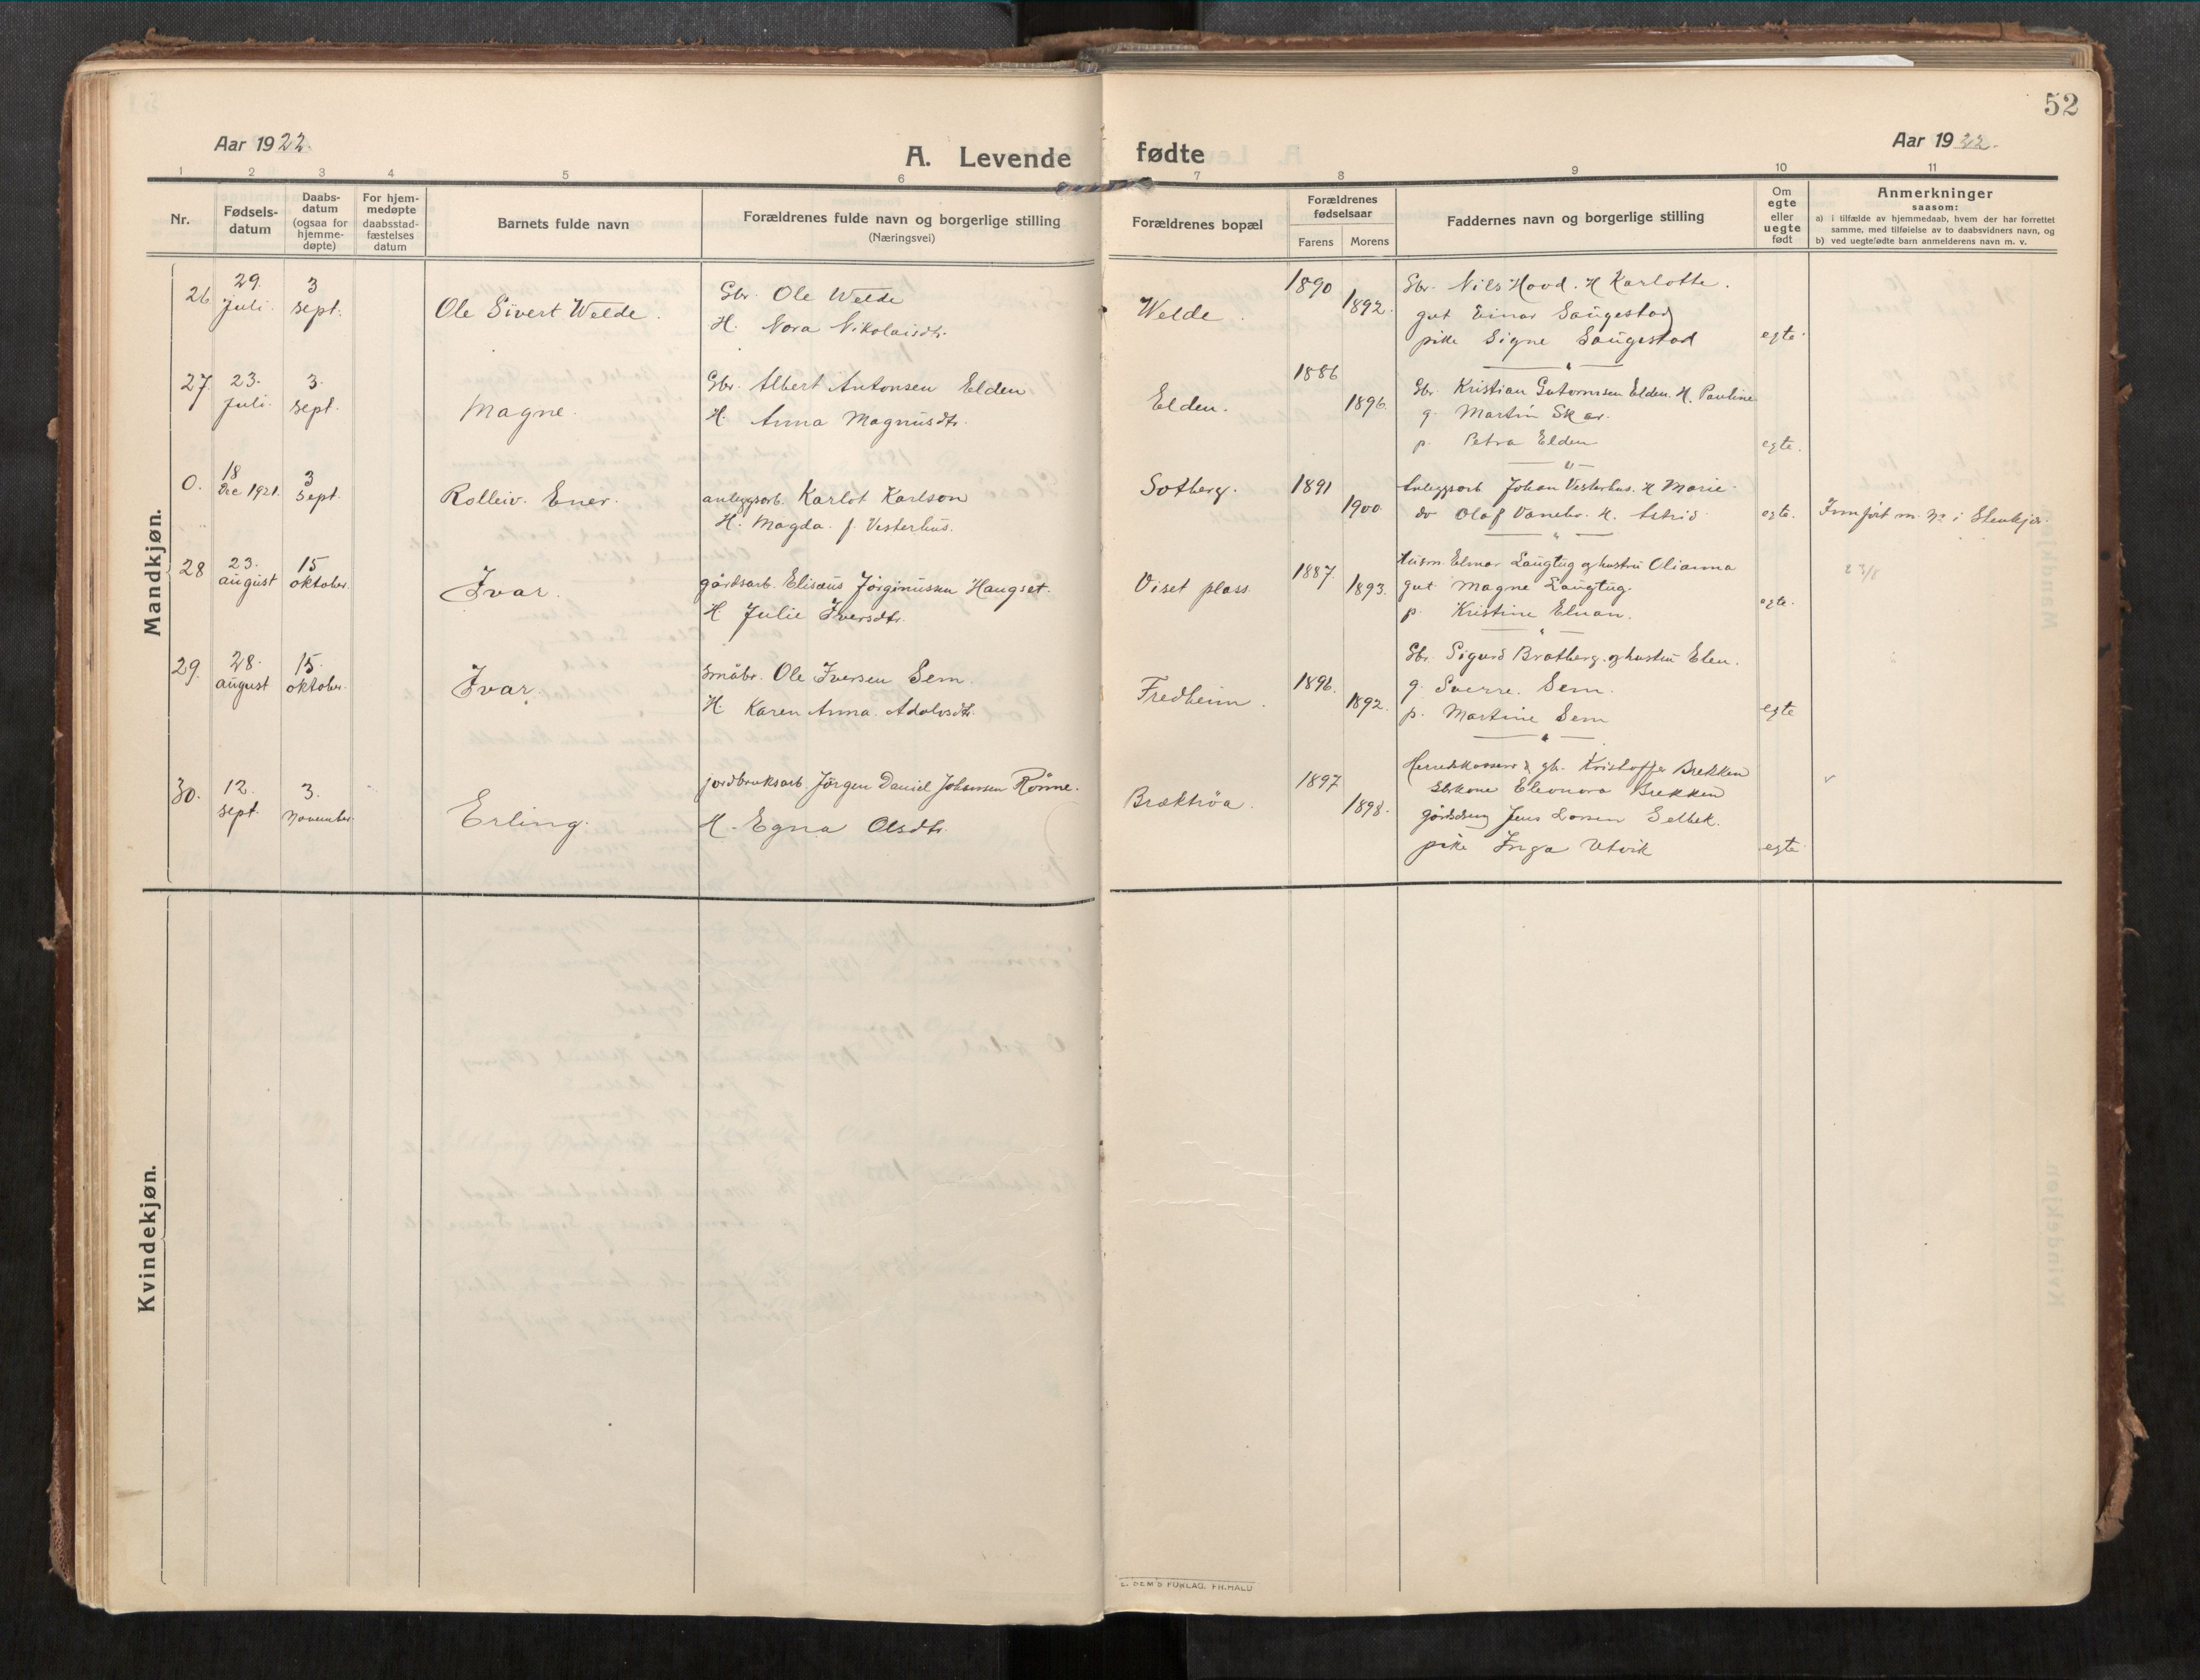 52
Aar 1922.
A. Levende fødte
Aar 1922.
1 2 3 4 5 6 7 8 9 10 11
Nr.
Fødsels-
datum
Daabs-
datum
(ogsaa for
hjemme-
døpte)
For hjem-
medøpte
daabsstad-
fæstelses
datum
Barnets fulde navn
Forældrenes fulde navn og borgerlige stilling
(Næringsvei)
Forældrenes bopæl
Forældrenes
fødselsaar
Farens Morens
Faddernes navn og borgerlige stilling
Om
egte
eller
uegte
født
Anmerkninger
saasom:
a) i tilfælde av hjemmedaab, hvem der har forrettet
samme, med tilføielse av to daabsvidners navn, og
b) ved uegtefødte barn anmelderens navn m. v.
Mandkjøn.
26
29.
juli.
3
sept.
Ole Sivert Welde.
Gbr. Ole Welde
H. Nora Nikolaisdtr.
Welde.
1890
1892.
Gbr. Nils Hovd. H Karlotte.
gut Einar Saugestad
pike Signe Saugestad
egte.
27.
23.
juli.
3.
sept.
Magne.
Gbr. Albert Antonsen Elden
H. Anna Magnusdtr.
Elden.
1886
1896.
Gbr. Kristian Gutormsen Elden. H. Pauline
g. Martin Skar.
p. Petra Elden
egte.
0.
18
Dec 1921.
3
sept.
Rolleiv. Ener.
anleggsarb. Karlot Karlson
H. Magda. f. Vesterhus.
Sotberg.
1891
1900.
Anleggsarb Johan Vesterhus. H Marie.
do Olaf H. Astrid
egte.
Innført m. No i Stenkjær.
28
23.
august
15
oktober.
Ivar.
gårdsarb. Elisæus Jørginussen Haugset.
H Julie Iversdtr.
Viset plass
1887.
1893.
Husm. Elmar Laugtug og hustru Olianna
gut Magne Laugtug.
p. Kristine Elnan.
egte.
29.
28.
august
15.
oktober.
Ivar.
Småbr. Ole Iversen Sem.
H. Karen Anna. Adolvsdtr.
Fredheim.
1896.
1892.
Gbr. Sigurd Bratberg. og hustru Elen.
g. Sverre. Sem.
p. Martine Sem
egte
30.
12.
sept.
3.
november.
Erling.
jordbruksarb. Jörgen Daniel Johansen Rönne.
H. Egna Olsdtr.
Bræktröa.
1897
1898.
Herredskasserer & gb. Kristoffer Brekken
Gbkone Eleonora Brekken
gårdsdreng Jens Larsen Selbek.
pike Inga Utvik
egte
Kvindekjøn.
E. SEM'S FORLAG. FR.HALD